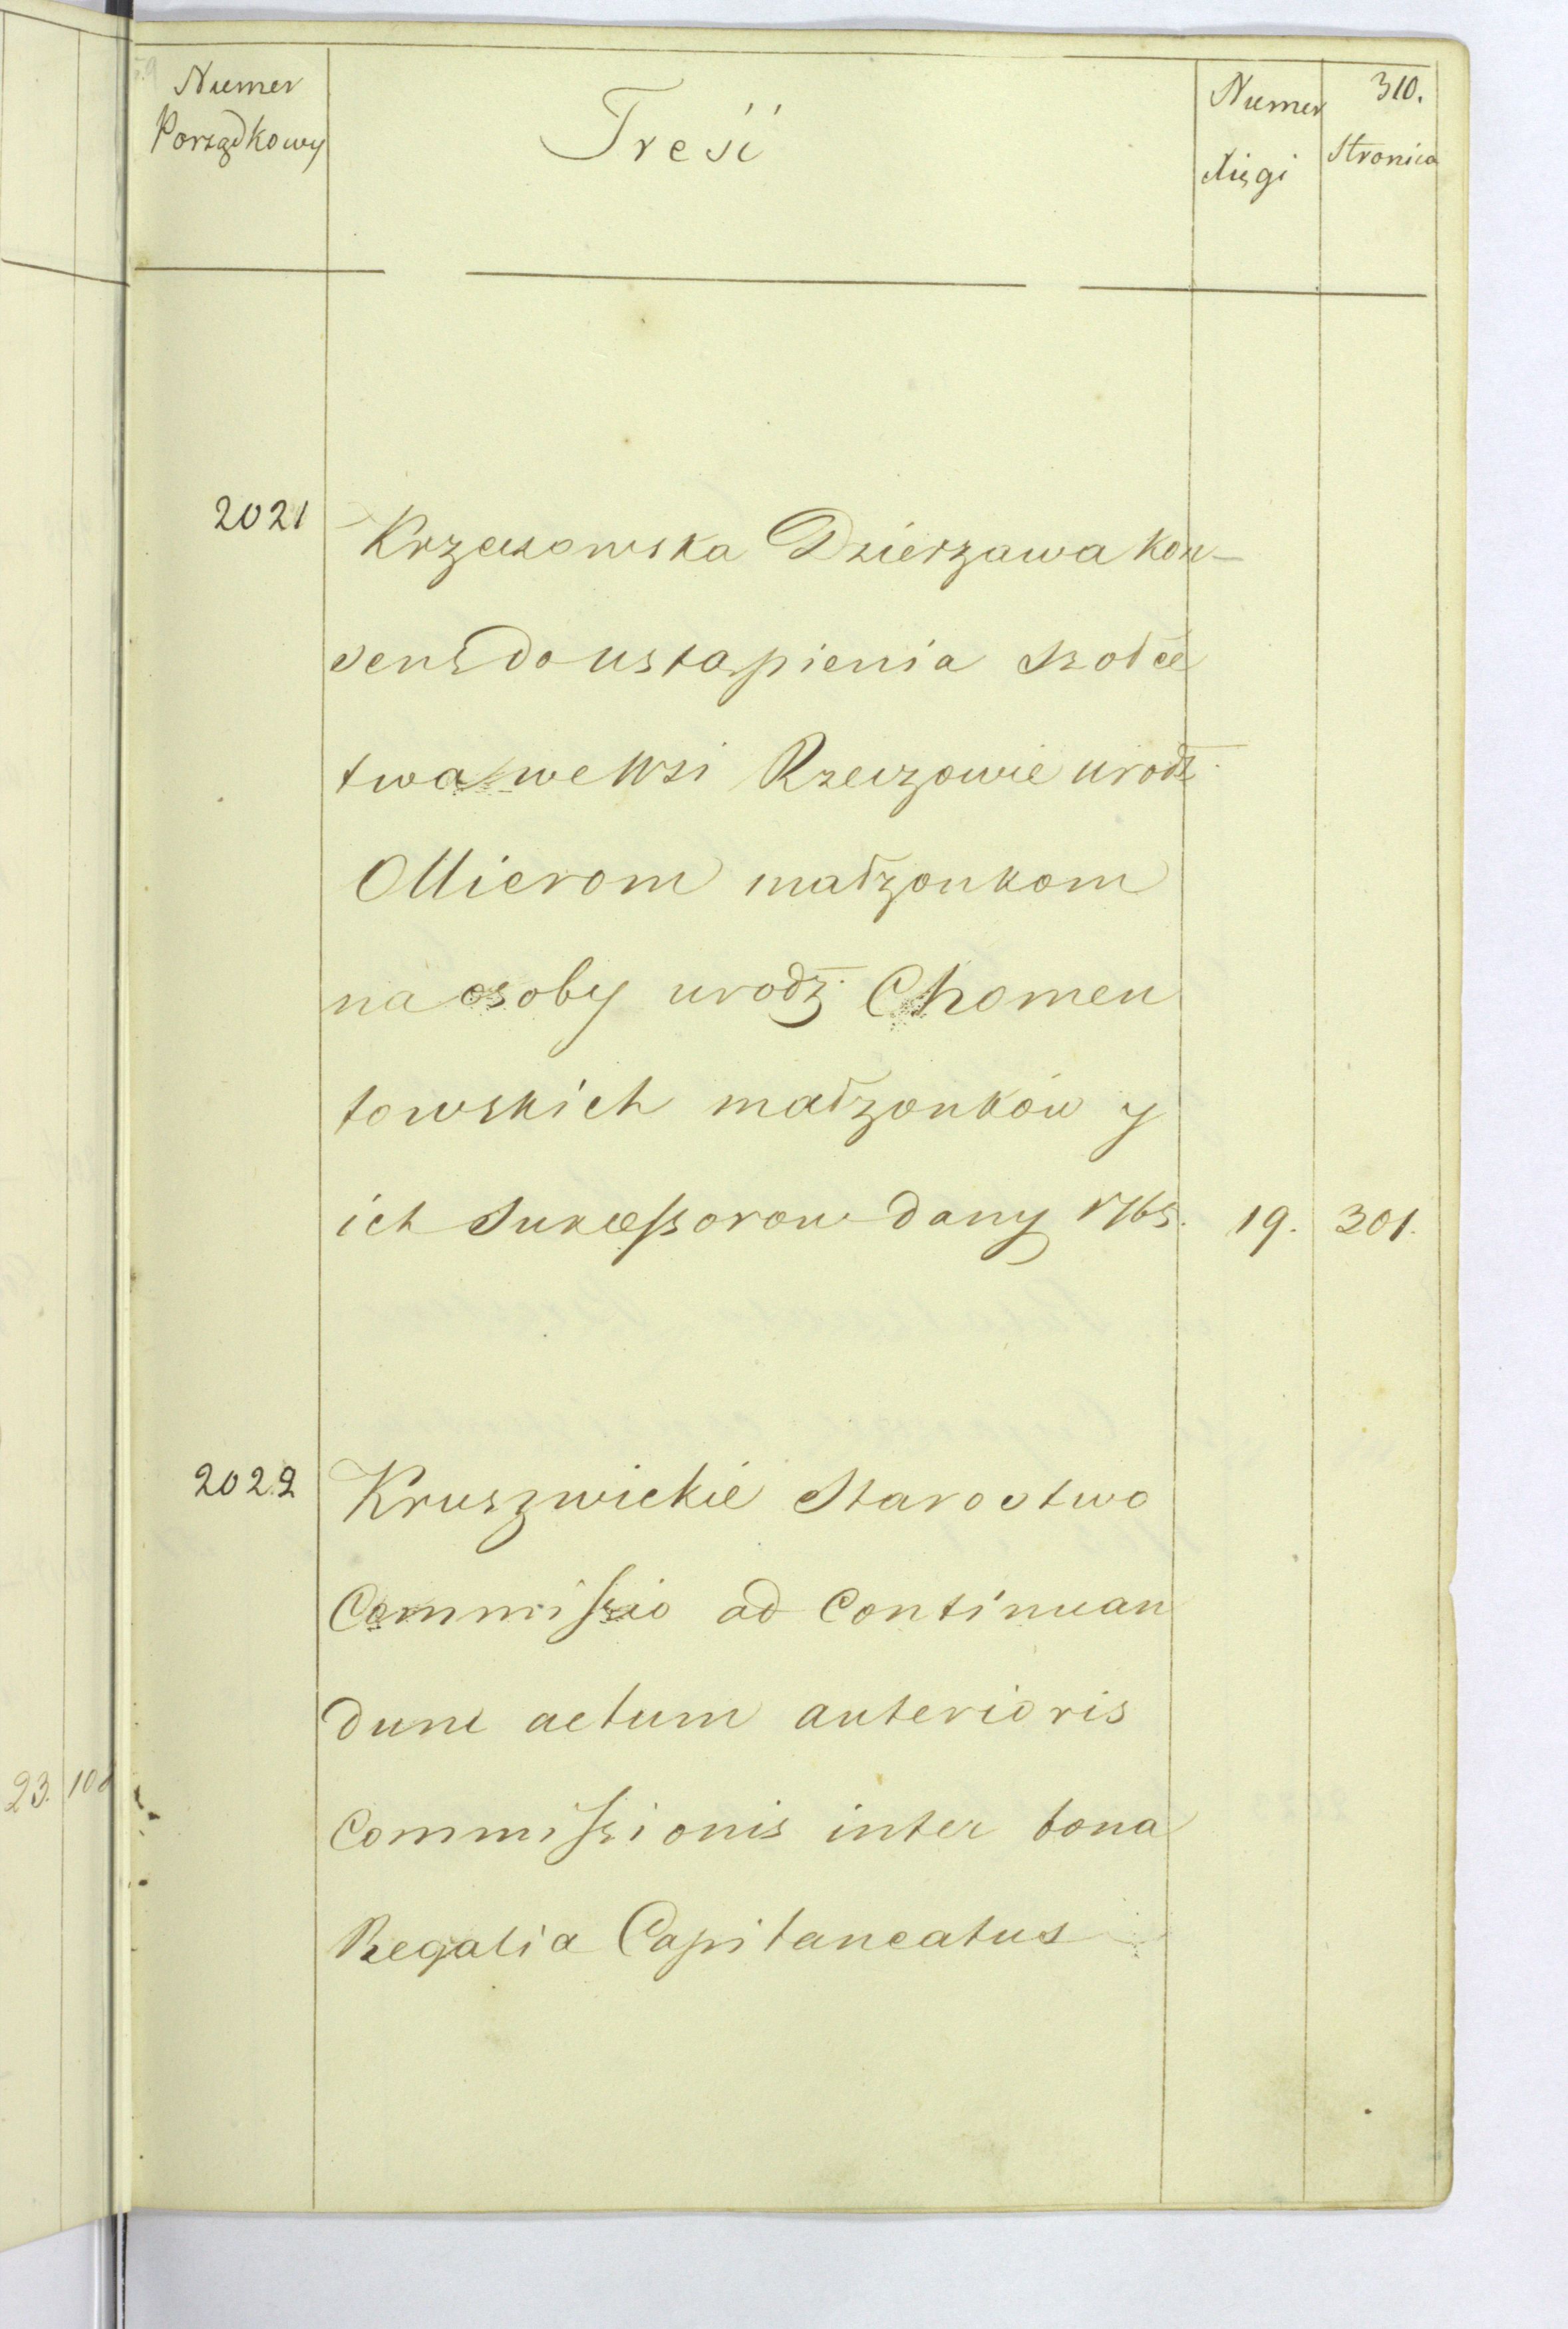 310.
Numer Porządkowy
Treść
Numer Xięgi
Stronica
2021
Krzeczowska Dzierzawa kon-
sens do ustąpienia szołec
twa we wsi Rzeczowie urodz.
Ollierom małzonkom
na osoby urodz. Chomen
towskich małzonków y
ich Sukcessorow dany 1765. 19. 301.
2022
Kruszwickie Starostwo
Commissio ad continuan
dum actum anterioris
Commissionis inter bona
Regalia Capitaneatus
23. 10